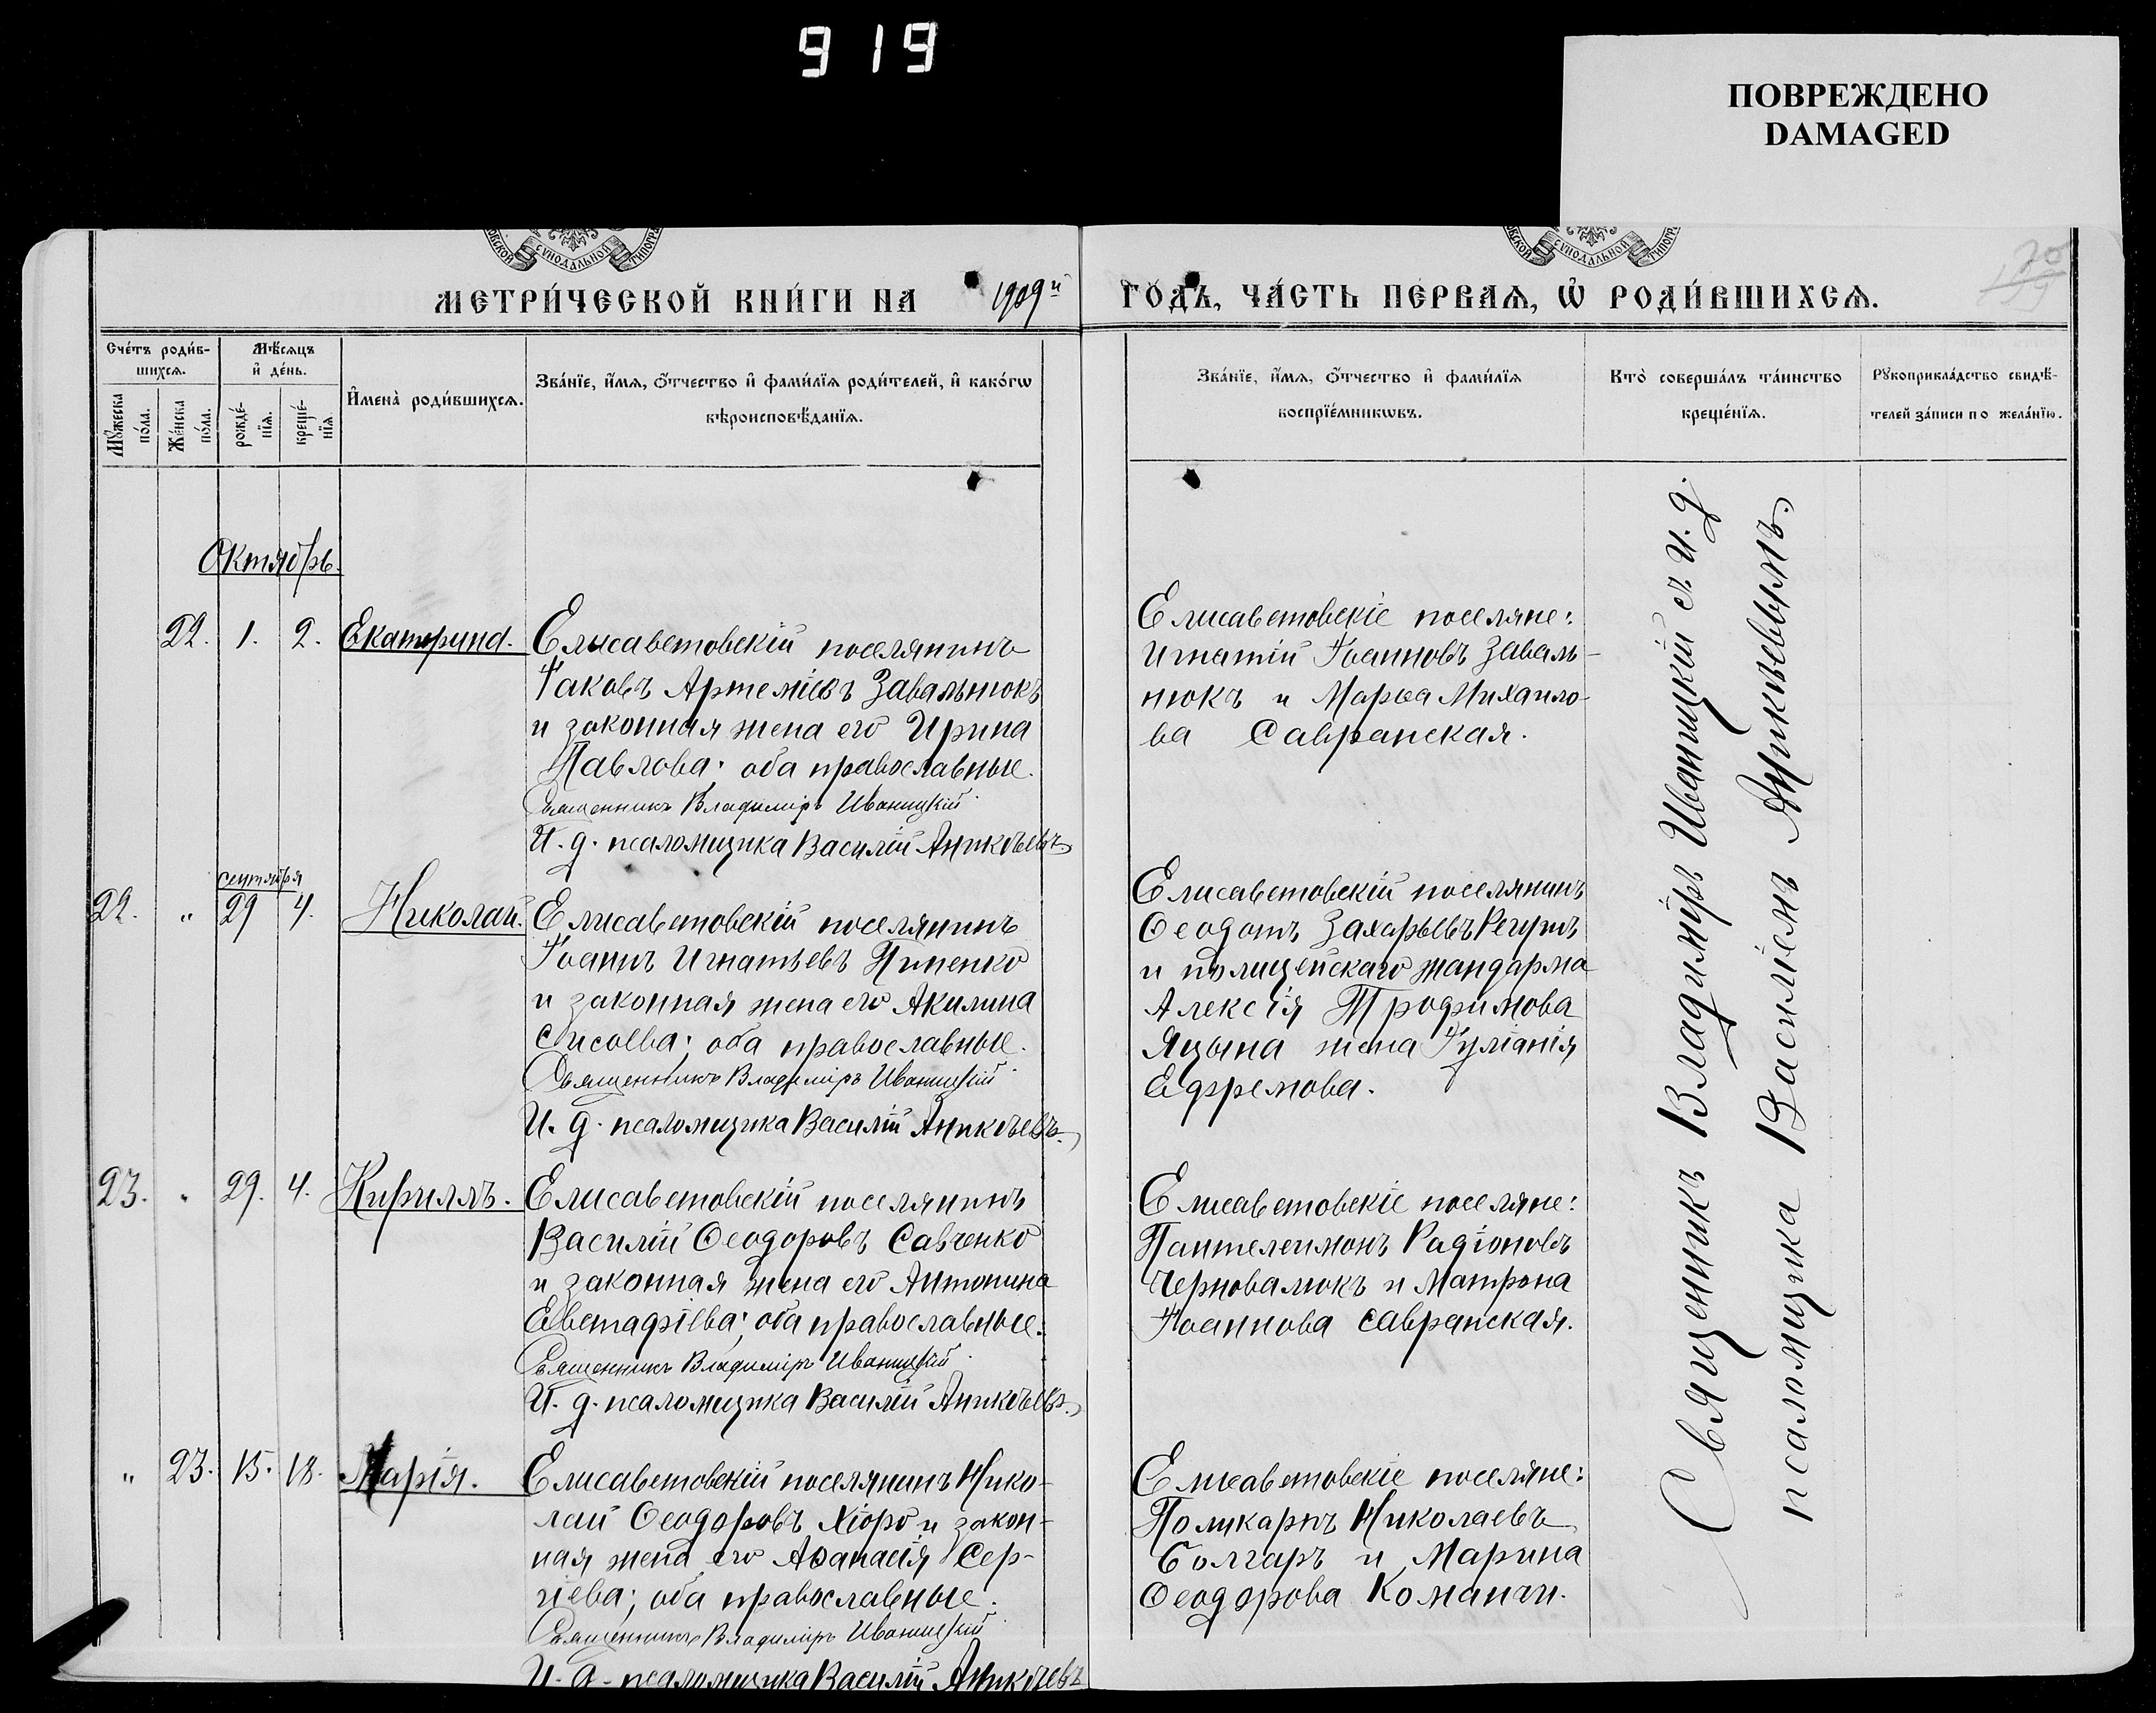 919
ПОВРЕЖДЕНО
DAMAGED
СУНОДАЛЬНОЙ
СУНОДАЛЬНОЙ
МЕТРИ́ЧЕСКОЙ КНИ́ГИ НА 1909й ГО́ДЪ, ЧА́СТЬ ПЕ́РВАѦ, Ѽ РОДИ́ВШИХСѦ.
Сче́тъ роди́в-
шихсѧ.
Мꙋ́жеска по́ла.
Же́нска по́ла.
Мѣ́сѧцъ
и҆ де́нь.
рожде́-
нїѧ.
креще́-
нїѧ.
И҆мена̀ роди́вшихсѧ.
Зва́нїе, и҆́мѧ, ѻ҆́тчество и҆ фами́лїѧ роди́телей, и҆ како́гѡ
вѣроисповѣ́данїѧ.
Зва́нїе, и҆́мѧ, ѻ҆́тчество и҆ фами́лїѧ
воспрїе́мникѡвъ.
Кто̀ соверша́лъ та́инство
креще́нїѧ.
Рꙋкоприкла́дство свидѣ́-
телей за́писи по жела́нїю.
Октябрь.
22. 1. 2. Екатерина.
Елисаветовскій поселянинъ
Іаковъ Артеміевъ Завальнюкъ
и законная жена его Ирина
Павлова; оба православные.
Священникъ Владиміръ Иваницкій
И. д. псаломщика Василій Аникѣевъ
Елисаветовскіе поселяне:
Игнатій Іоанновъ Заваль-
нюкъ и Марѳа Михаило-
ва Савранская.
сентября
22. " 29 4. Николай.
Елисаветовскій поселянинъ
Іоаннъ Игнатьевъ Пименко
и законная жена его Акилина
Сысоева; оба православные.
Священникъ Владиміръ Иваницкій
И. д. псаломщика Василій Аникѣевъ.
Елисаветовскій поселянинъ
Ѳеодотъ Захарьевъ
и полицейскаго жандарма
Алексія Трофимова
жена Іуліанія
Ефремова.
23. " 29. 4. Кириллъ.
Елисаветовскій поселянинъ
Василій Ѳеодоровъ Савченко
и законная жена его Антонина
Евстафіева; оба православные.
Священникъ Владиміръ Иваницкій
И. д. псаломщика Василій Аникѣевъ.
Елисаветовскіе поселяне:
Пантелеимонъ Радіоновъ
Черновалюкъ и Матрона
Іоаннова Савранская.
" 23. 15. 18. Марія.
Елисаветовскій поселянинъ Нико-
лай Ѳеодоровъ Хіоро и закон-
ная жена его Аѳанасія Сер-
гіева; оба православные.
Священникъ Владиміръ Иваницкій
И. д. псаломщика Василій Аникѣевъ
Елисаветовскіе поселяне:
Поликарпъ Николаевъ
Болгаръ и Марина
Ѳеодорова Команчи.
Священникъ Владиміръ Иваницкій съ и. д.
псаломщика Василіемъ Аникѣевымъ.